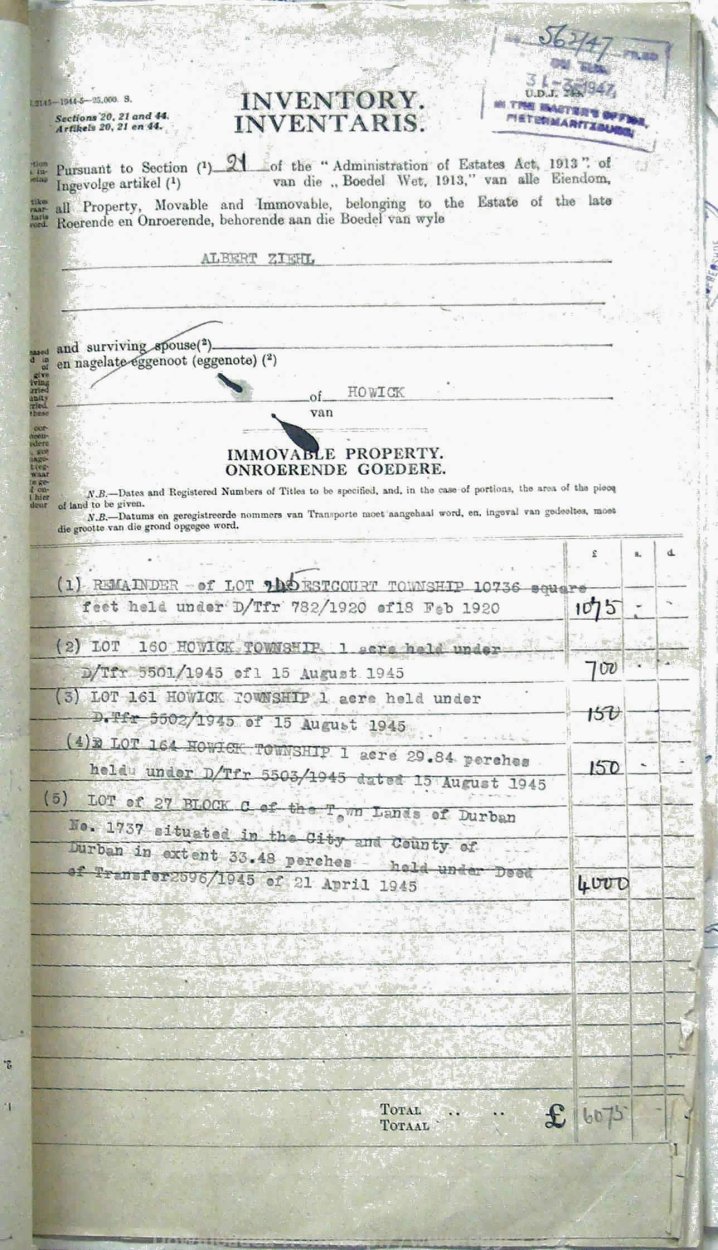 562/47
FILED
31-3-1947
U.D.J.
IN THE MASTER'S OFFICE,
PIETERMARITZBURG,
J.2145—1944-5—25,000. S.
Sections 20, 21 and 44.
Artikels 20, 21 en 44.
INVENTORY.
INVENTARIS.
Pursuant to Section (¹) 21 of the "Administration of Estates Act, 1913", of
Ingevolge artikel (¹) van die „Boedel Wet, 1913," van alle Eiendom,
all Property, Movable and Immovable, belonging to the Estate of the late
Roerende en Onroerende, behorende aan die Boedel van wyle
ALBERT ZIEHL
and surviving spouse(²)
en nagelate eggenoot (eggenote) (²)
of HOWICK
van
IMMOVABLE PROPERTY.
ONROERENDE GOEDERE.
N.B.—Dates and Registered Numbers of Titles to be specified, and, in the case of portions, the area of the piece
of land to be given.
N.B.—Datums en geregistreerde nommers van Transporte moet aangehaal word, en, ingeval van gedeeltes, moet
die grootte van die grond opgegee word.
£ s. d.
(1) REMAINDER of LOT ESTCOURT TOWNSHIP 10736 square
feet held under D/Tfr 782/1920 of18 Feb 1920 1075 - -
(2) LOT 160 HOWICK TOWNSHIP 1 acre held under
D/Tfr 5501/1945 ofl 15 August 1945 700 - -
(3) LOT 161 HOWICK TOWNSHIP 1 acre held under
D.Tfr 5502/1945 of 15 August 1945 150
(4) LOT 164 HOWICK TOWNSHIP 1 acre 29.84 perches
held under D/Tfr 5503/1945 dated 15 August 1945 150 - -
(5) LOT of 27 BLOCK C of the Town Lands of Durban
No. 1737 situated in the City and County of
Durban in extent 33.48 perches held under Deed
of Transfer2596/1945 of 21 April 1945 4000
TOTAL .. .. £ 6075 - -
TOTAAL